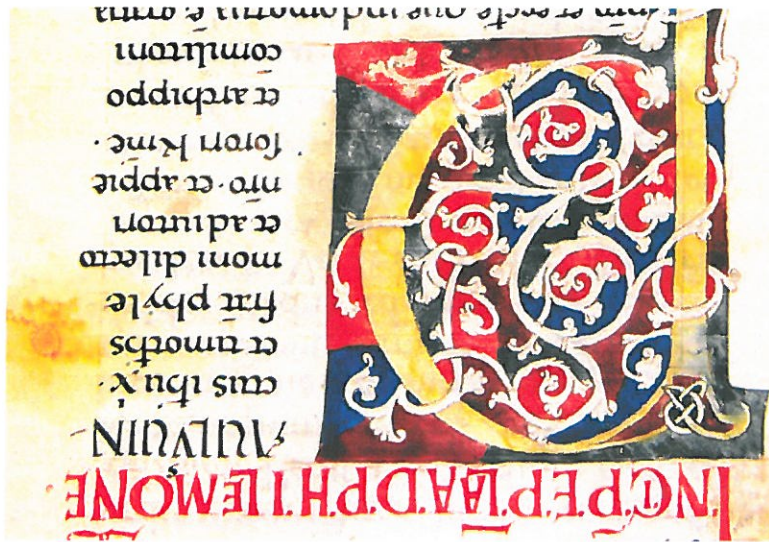 INCIP̄. EP̄LA AD. PHILEMONĒ.
PAULUS VIN-
ctus ihu x̄.
et timoths
frat̄ phyle
moni dilecto
et adiutori
nr̄o. et appie
sorori km̄e.
et archippo
comilitoni
et eccle que in domo tua ē. gratia